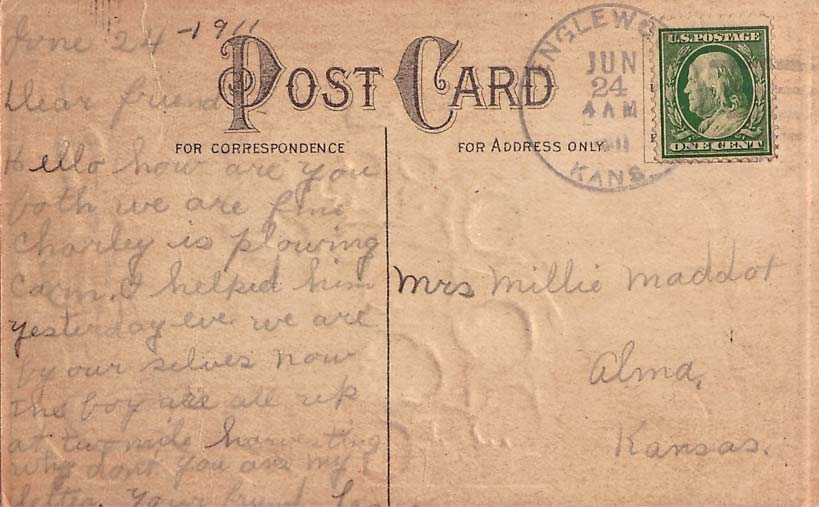 June 24 -1911
Dear friend
Hello how are you
both we are fine
Charley is plowing
Corn. I helped him
yesterday eve. we are
by our selves now
the boy are all up
at twmile harvesting
why dont you ans my
letter. Your friend
POST CARD
FOR CORRESPONDENCE
FOR ADDRESS ONLY
JUN
24
4 AM
KANS.
U.S. POSTAGE
ONE CENT
Mrs Millie Maddot
Alma,
Kansas.